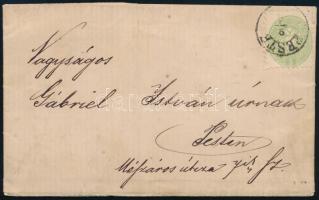 PESTH
Nagyságos
Gábriel István úrnak
Pesten
Mészáros útcza